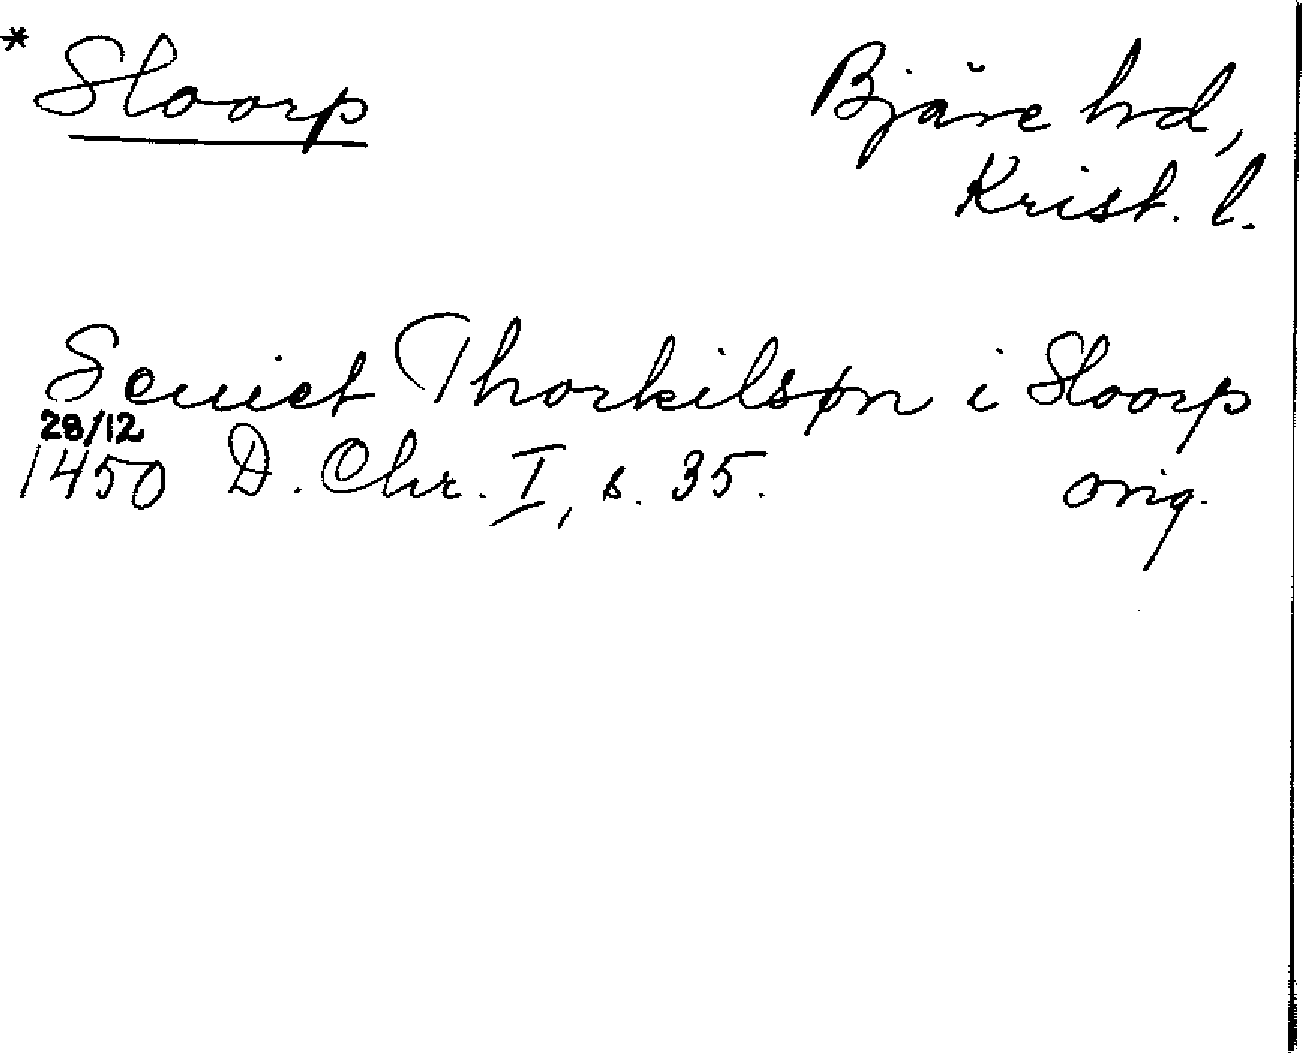 * Sloorp
Bjäre hd,
Krist. l.
Seuict Thorkilsøn i Sloorp
28/12
1450 D. Chr. I, s. 35. orig.